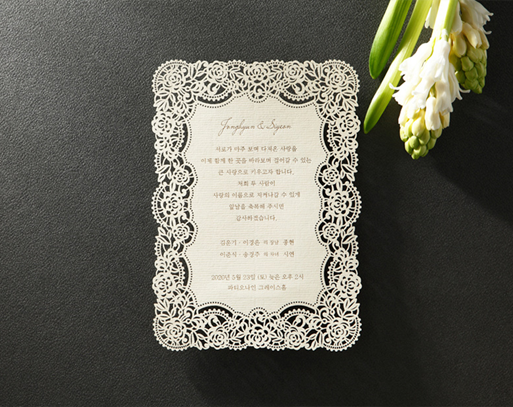 Jonghyun & Siyeon
서로가 마주 보며 다져온 사랑을
이제 함께 한 곳을 바라보며 걸어갈 수 있는
큰 사랑으로 키우고자 합니다.
저희 두 사람이
사랑의 이름으로 지켜나갈 수 있게
앞날을 축복해 주시면
감사하겠습니다.
김은기 · 이경은 의 장남 종현
이준서 · 송경주 의 차녀 시연
2020년 5월 23일 (토) 늦은 오후 2시
파티오나인 그레이스홀